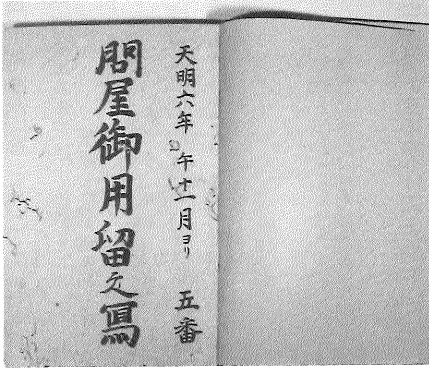 天明六年 午十一月ヨリ 五番
問屋御用留之寫